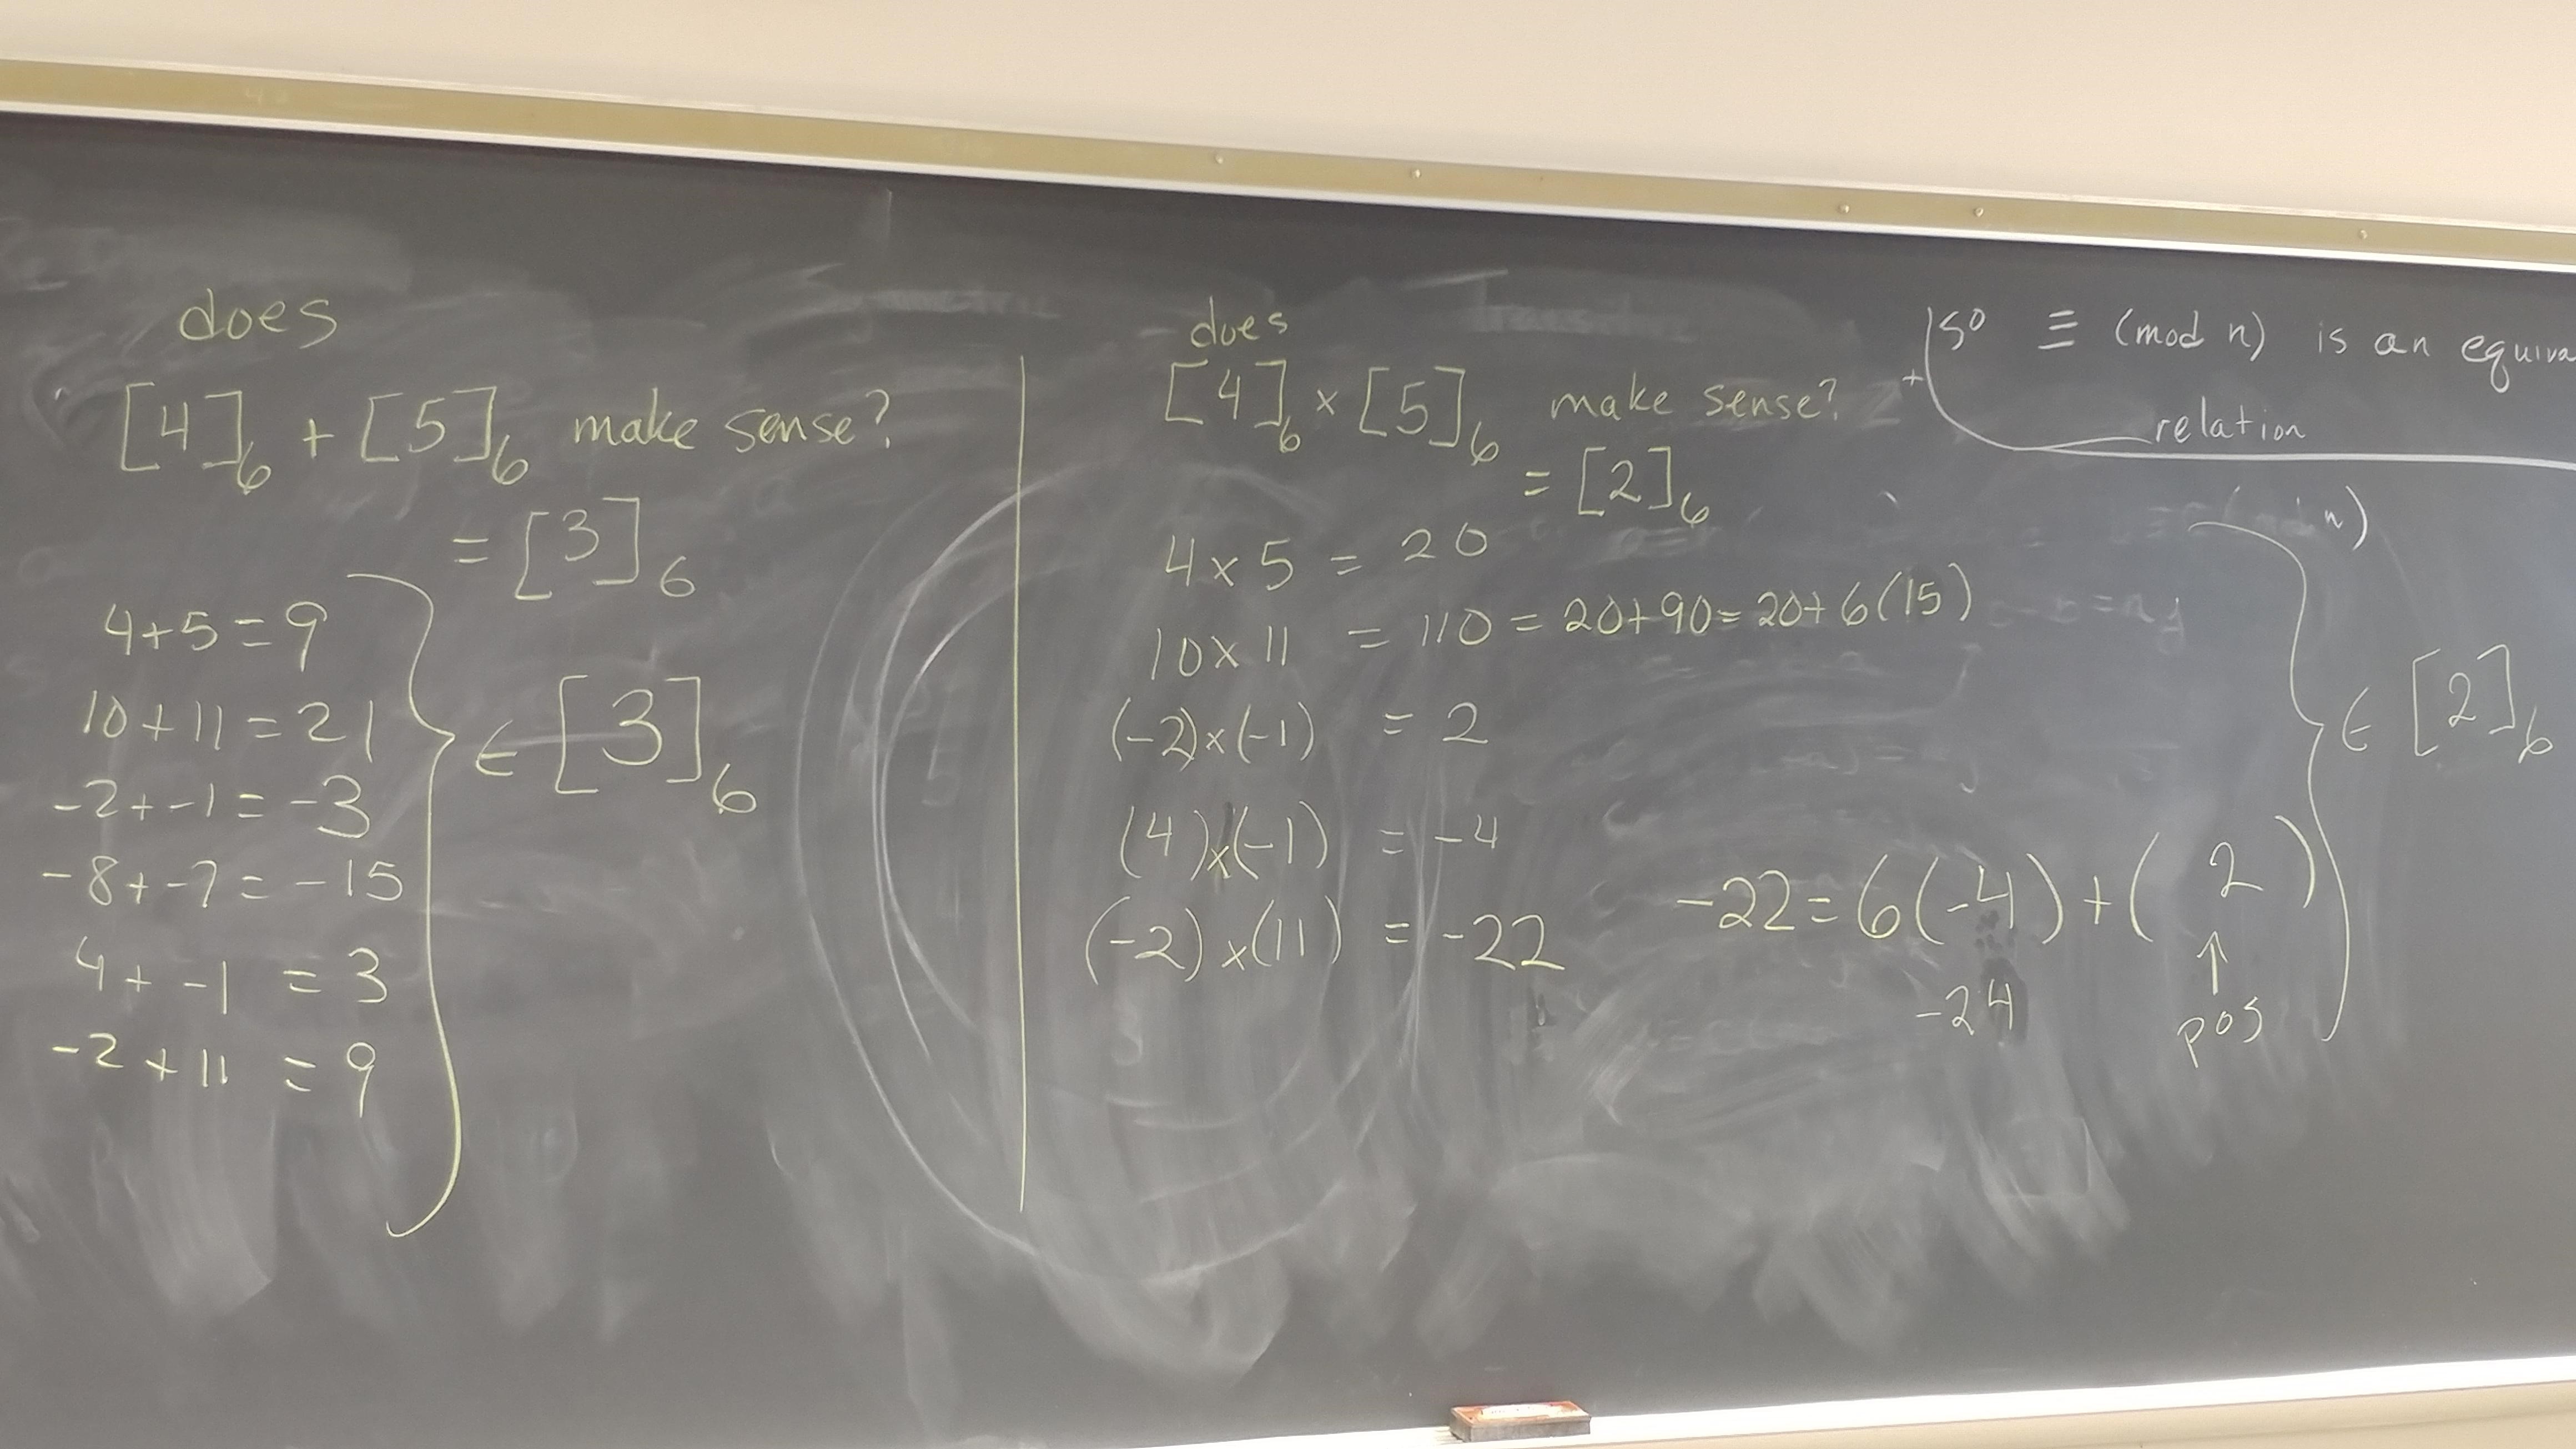 does
[4]₆ + [5]₆ make sense?
= [3]₆
4+5=9
10+11=21
-2+-1=-3
-8+-7=-15
4+-1=3
-2+11=9
∈ [3]₆
does
[4]₆ × [5]₆ make sense?
= [2]₆
4×5 = 20
10×11 = 110 = 20+90= 20+6(15)
(-2)×(-1) = 2
(4)×(-1) = -4
(-2)×(11) = -22
-22=6(-4)+( 2 )
-24
↑
pos
∈ [2]₆
so ≡ (mod n) is an equiva
relation
n)